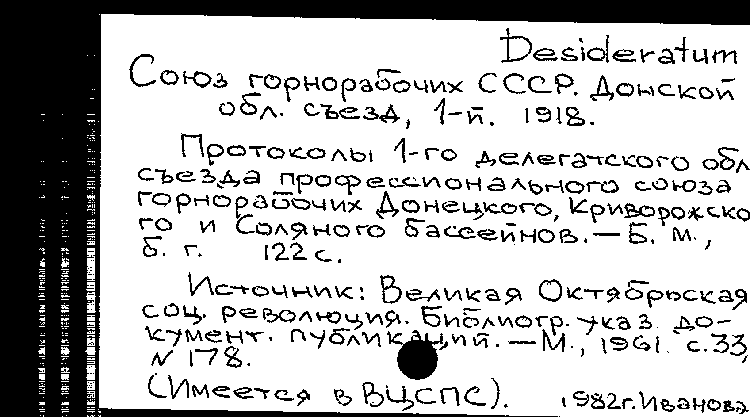 Desideratum
Союз горнорабочих СССР. Донской
обл. съезд, 1-й. 1918.
Протоколы 1-го делегатского обл
съезда профессионального союза
горнорабочих Донецкого, Криворожско
го и Соляного бассейнов. — Б. м.,
б. г. 122 с.
Источник: Великая Октябрьская
соц. революция. Библиогр. указ. до-
кумент. публикаций. — М., 1961. с.33,
N 178.
(Имеется в ВЦСПС). 1982г. Иванова